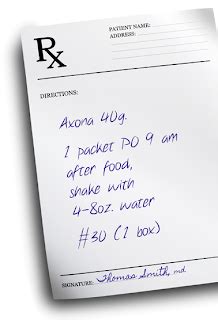 PATIENT NAME:
ADDRESS:
Rx
DIRECTIONS:
Axona 40g.
1 packet PO 9 am
after food,
shake with
4-8oz. water
#30 (1 box)
SIGNATURE: Thomas Smith, md